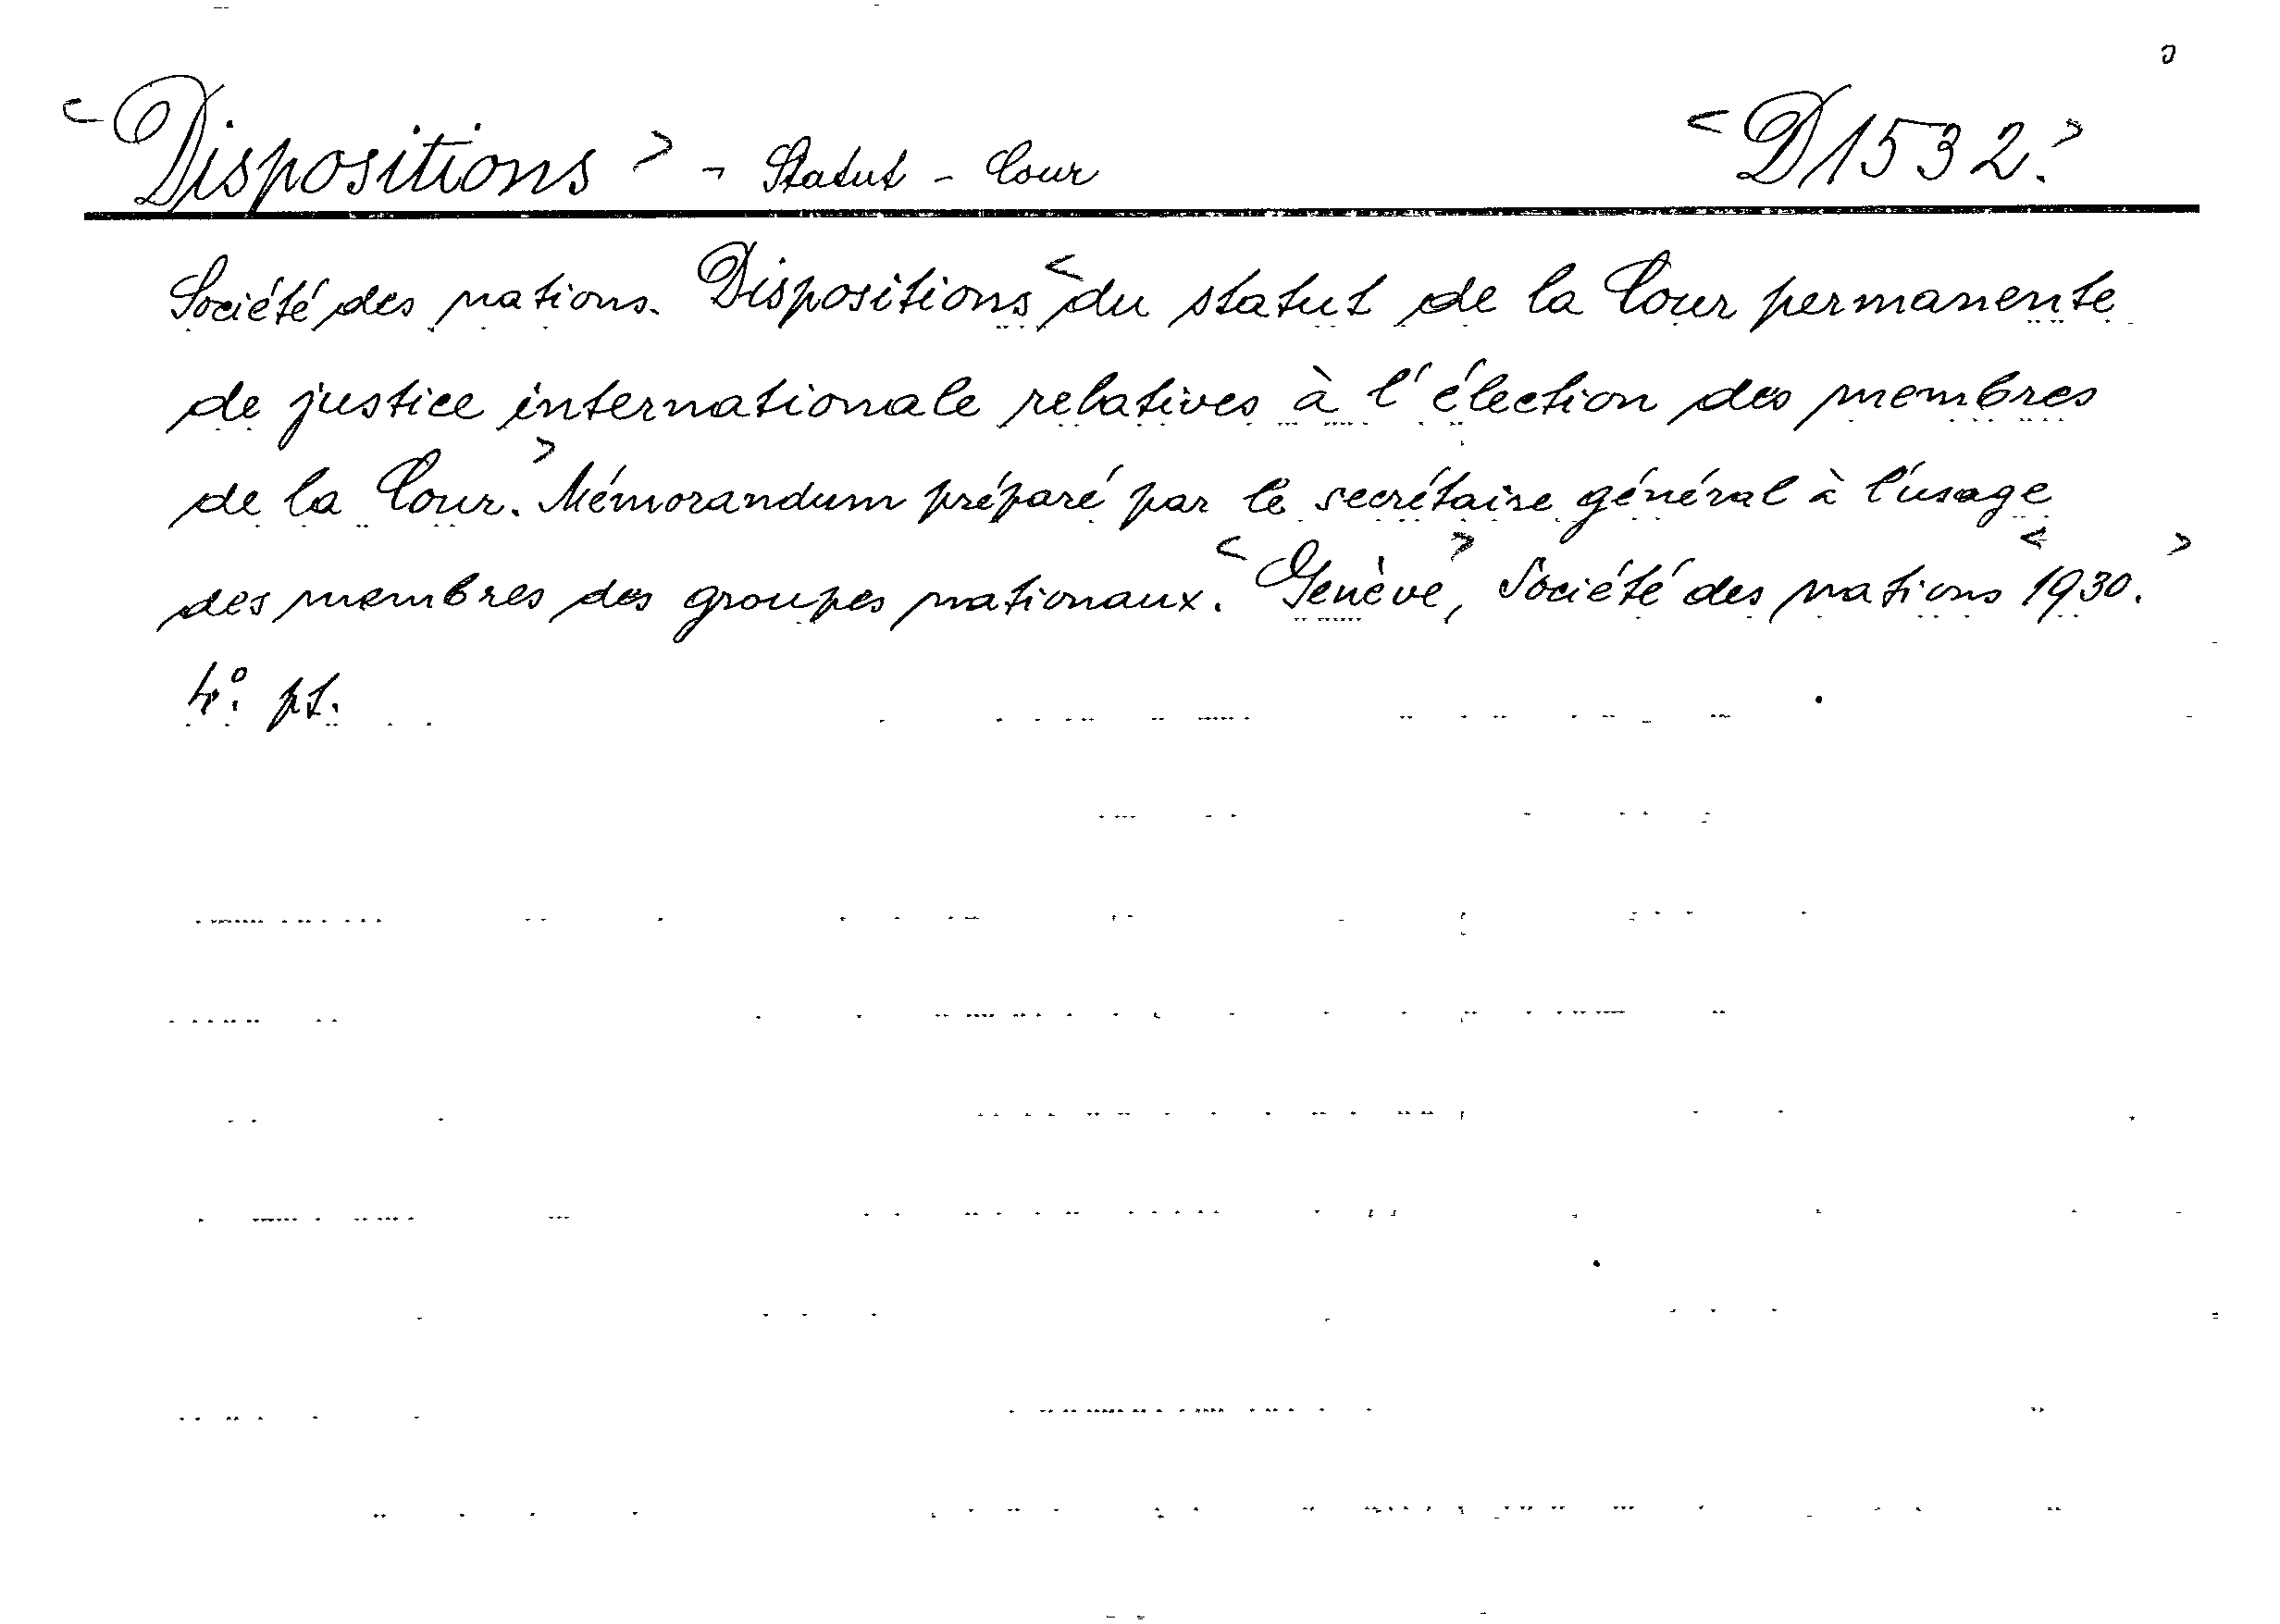 <Dispositions> - Statut - Cour <D1532.>
Société des nations. Dispositions <du statut de la Cour permanente
de justice internationale relatives à l'élection des membres
de la Cour.> Mémorandum préparé par le secrétaire général à l'usage
des membres des groupes nationaux. <Genève>, Société des nations <1930.>
4°. pt.